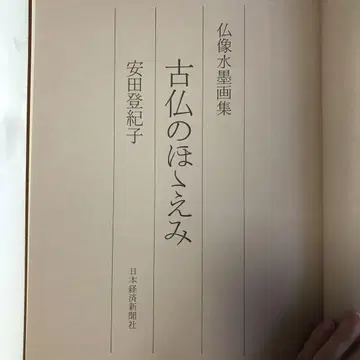 仏像水墨画集
古仏のほゝえみ
安田登紀子
日本経済新聞社